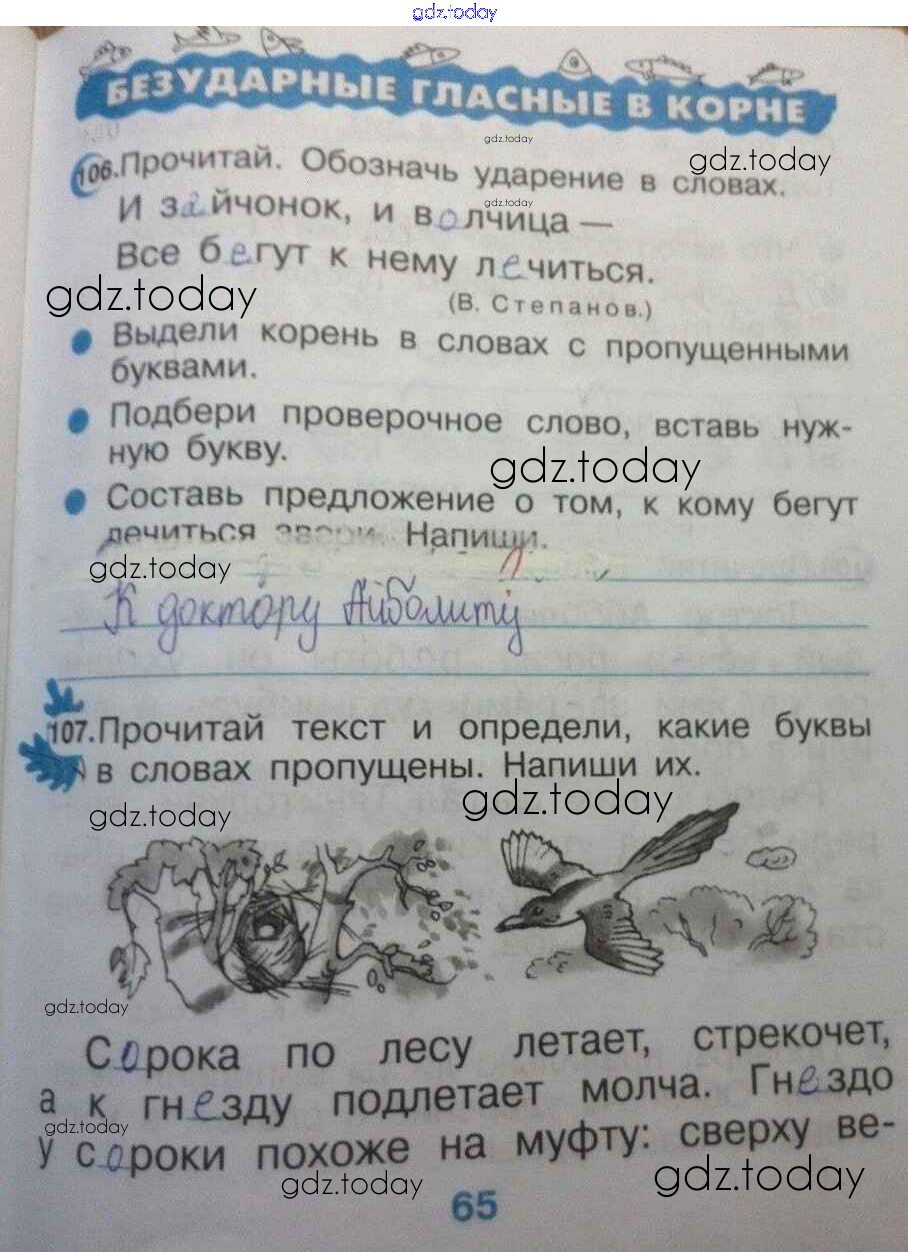 gdz.today
БЕЗУДАРНЫЕ ГЛАСНЫЕ В КОРНЕ
gdz.today
106. Прочитай. Обозначь ударение в словах.
gdz.today
gdz.today
И зайчонок, и волчица —
Все бегут к нему лечиться.
gdz.today
(В. Степанов.)
Выдели корень в словах с пропущенными
буквами.
Подбери проверочное слово, вставь нуж-
ную букву.
gdz.today
Составь предложение о том, к кому бегут
лечиться звери. Напиши.
gdz.today
К доктору Айболиту
107. Прочитай текст и определи, какие буквы
в словах пропущены. Напиши их.
gdz.today
gdz.today
gdz.today
Сорока по лесу летает, стрекочет,
а к гнезду подлетает молча. Гнездо
gdz.today
у сороки похоже на муфту: сверху ве-
gdz.today
gdz.today
65